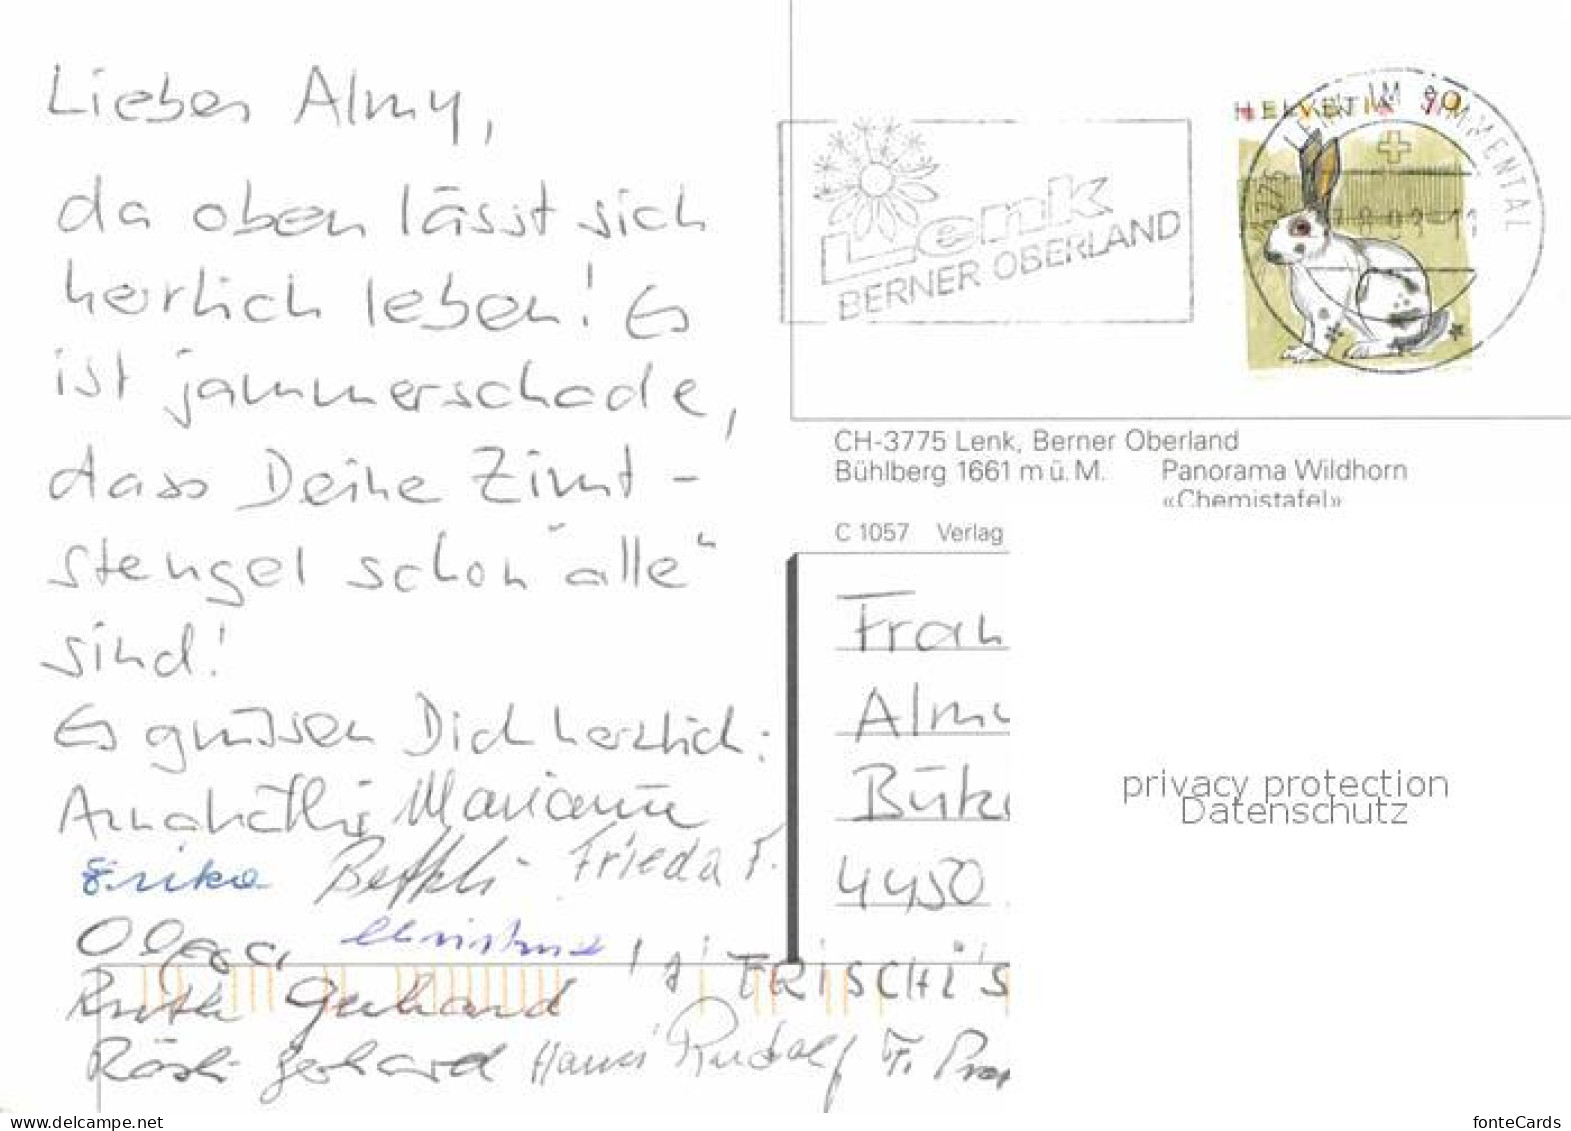 Liebes Almy,
da oben lässt sich
herrlich leben! Es
ist jammerschade,
dass Deine Zimt-
stengel schon "alle"
sind!
Es grüssen Dich herzlich:
Annakäthi Marianne
Erika Bethli Frieda F.
Olga Christine
Ruth Gerhard FRISCHI'S
Rösli Gerhard Hansi Rudolf Fr.
HELVETIA 90
LENK IM SIMMENTAL
3775
Lenk
BERNER OBERLAND
CH-3775 Lenk, Berner Oberland
Bühlberg 1661 m ü. M. Panorama Wildhorn
«Chemistafel»
C 1057 Verlag
Frau
Almy
4450
privacy protection
Datenschutz
www.delcampe.net
fonteCards